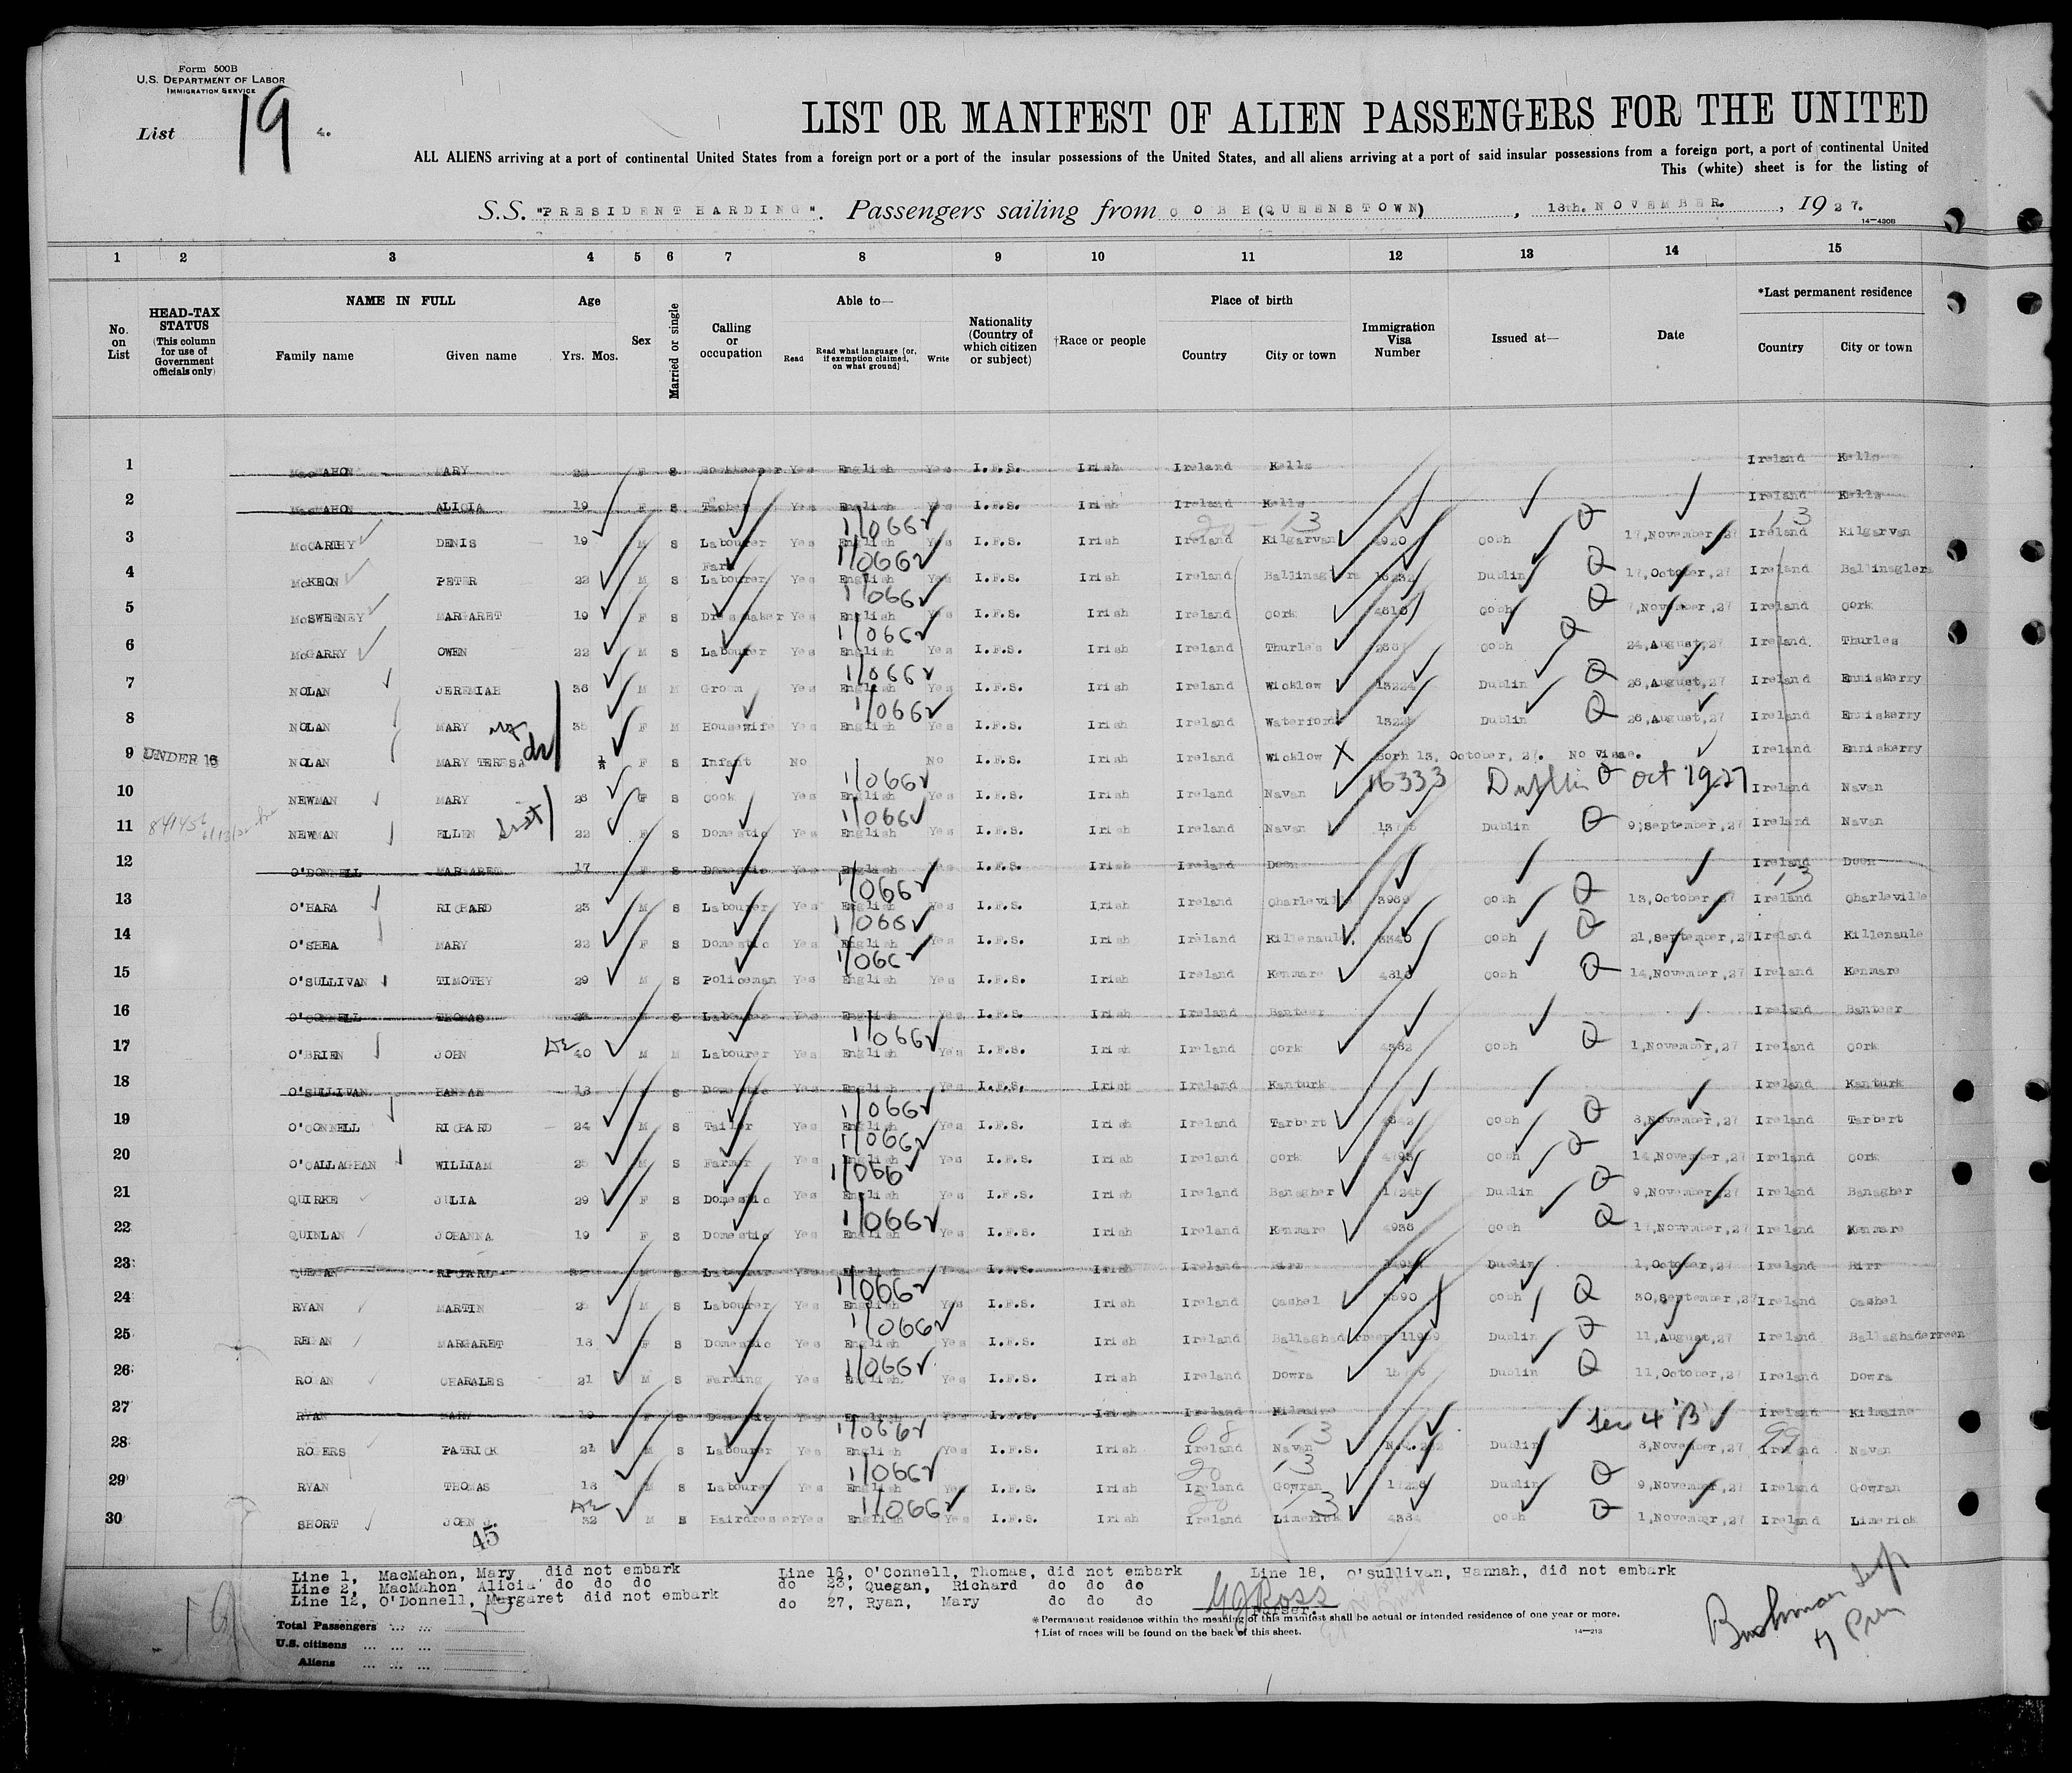 Form 500B
U.S. DEPARTMENT OF LABOR
IMMIGRATION SERVICE
List 19
LIST OR MANIFEST OF ALIEN PASSENGERS FOR THE UNITED
ALL ALIENS arriving at a port of continental United States from a foreign port or a port of the insular possessions of the United States, and all aliens arriving at a port of said insular possessions from a foreign port, a port of continental United
This (white) sheet is for the listing of
S.S. "PRESIDENT HARDING". Passengers sailing from COBH (QUEENSTOWN), 18th. NOVEMBER., 1927.
14—430B
1 2 3 4 5 6 7 8 9 10 11 12 13 14 15
No. on List
HEAD-TAX STATUS (This column for use of Government officials only)
NAME IN FULL Family name Given name
Age Yrs. Mos.
Sex
Married or single
Calling or occupation
Able to— Read Read what language [or, if exemption claimed, on what ground] Write
Nationality (Country of which citizen or subject)
†Race or people
Place of birth Country City or town
Immigration Visa Number
Issued at—
Date
*Last permanent residence Country City or town
1 MacMAHON MARY F S Bookkeeper Yes English Yes I.F.S. Irish Ireland Kells Ireland Kells
2 MacMAHON ALICIA 19 F S Yes English Yes I.F.S. Irish Ireland Kells Ireland Kells
3 McCARTHY DENIS 19 M S Labourer Yes English Yes I.F.S. Irish Ireland Kilgarvan 4920 Cobh 17,November,27 Ireland Kilgarvan
4 McKEON PETER 22 M S Farm Labourer Yes English Yes I.F.S. Irish Ireland Dublin 17,October,27 Ireland
5 McSWEENEY MARGARET 19 F S Dressmaker Yes English Yes I.F.S. Irish Ireland Cork Cobh 7,November,27 Ireland Cork
6 McGARRY OWEN 22 M S Labourer Yes English Yes I.F.S. Irish Ireland Thurles Cobh 24,August,27 Ireland Thurles
7 NOLAN JEREMIAH 36 M M Groom Yes English Yes I.F.S. Irish Ireland Wicklow 13224 Dublin 26,August,27 Ireland Enniskerry
8 NOLAN MARY 35 F M Housewife Yes English Yes I.F.S. Irish Ireland Waterford 13225 Dublin 26,August,27 Ireland Enniskerry
9 UNDER 16 NOLAN MARY TERESA F S Infant No No I.F.S. Irish Ireland Wicklow Born 13, October, 27. No Visae. Ireland Enniskerry
10 NEWMAN MARY 26 F S Cook Yes English Yes I.F.S. Irish Ireland Navan 16333 Dublin Oct 19.27 Ireland Navan
11 NEWMAN ELLEN 22 F S Domestic Yes English Yes I.F.S. Irish Ireland Navan Dublin 9,September,27 Ireland Navan
12 O'DONNELL MARGARET 17 F S Domestic Yes English Yes I.F.S. Irish Ireland Doon Ireland Doon
13 O'HARA RICHARD 25 M S Labourer Yes English Yes I.F.S. Irish Ireland Charleville Cobh 13,October,27 Ireland Charleville
14 O'SHEA MARY 22 F S Domestic Yes English Yes I.F.S. Irish Ireland Killenaule Cobh 21,September,27 Ireland Killenaule
15 O'SULLIVAN TIMOTHY 29 M S Policeman Yes English Yes I.F.S. Irish Ireland Kenmare Cobh 14,November,27 Ireland Kenmare
16 O'CONNELL THOMAS S Labourer Yes English Yes I.F.S. Irish Ireland Banteer Ireland Banteer
17 O'BRIEN JOHN 40 M M Labourer Yes English Yes I.F.S. Irish Ireland Cork 4382 Cobh 1,November,27 Ireland Cork
18 O'SULLIVAN HANNAH 18 F S Domestic Yes English Yes I.F.S. Irish Ireland Kanturk Ireland Kanturk
19 O'CONNELL RICHARD 24 M S Tailor Yes English Yes I.F.S. Irish Ireland Tarbert Cobh 8,November,27 Ireland Tarbert
20 O'CALLAGHAN WILLIAM M S Farmer Yes English Yes I.F.S. Irish Ireland Cork Cobh 14,November,27 Ireland Cork
21 QUIRKE JULIA 29 F S Domestic Yes English Yes I.F.S. Irish Ireland Banagher 17245 Dublin 9,November,27 Ireland Banagher
22 QUINLAN JOHANNA 19 F S Domestic Yes English Yes I.F.S. Irish Ireland Kenmare 4938 Cobh 17,November,27 Ireland Kenmare
23 QUEGAN RICHARD M S Labourer Yes English Yes I.F.S. Irish Ireland Birr Dublin 1,October,27 Ireland Birr
24 RYAN MARTIN M S Labourer Yes English Yes I.F.S. Irish Ireland Cashel Cobh 30,September,27 Ireland Cashel
25 REGAN MARGARET 18 F S Domestic Yes English Yes I.F.S. Irish Ireland Ballaghaderreen Dublin 11,August,27 Ireland Ballaghaderreen
26 ROGAN CHARALES 21 M S Farming Yes English Yes I.F.S. Irish Ireland Dowra Dublin 11,October,27 Ireland Dowra
27 RYAN MARY 19 F S Domestic Yes English Yes I.F.S. Irish Ireland Kilmaine Sec 4 'B' Ireland Kilmaine
28 ROGERS PATRICK 21 M S Labourer Yes English Yes I.F.S. Irish Ireland Navan Dublin 8,November,27 Ireland Navan
29 RYAN THOMAS 18 M S Labourer Yes English Yes I.F.S. Irish Ireland Gowran 17228 Dublin 9,November,27 Ireland Gowran
30 SHORT JOHN J. 32 M S Hairdresser Yes English Yes I.F.S. Irish Ireland Limerick 4384 Cobh 1,November,27 Ireland Limerick
45
Line 1, MacMahon, Mary did not embark Line 16, O'Connell, Thomas, did not embark Line 18, O'Sullivan, Hannah, did not embark
Line 2, MacMahon Alicia do do do do 23, Quegan, Richard do do do
Line 12, O'Donnell, Margaret did not embark do 27, Ryan, Mary do do do
Purser.
Total Passengers
U.S. citizens
Aliens
* Permanent residence within the meaning of this manifest shall be actual or intended residence of one year or more.
† List of races will be found on the back of this sheet.
14—213